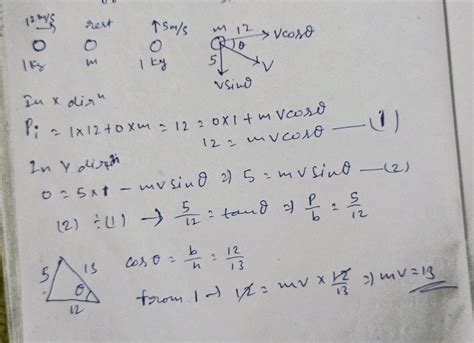 12 m/s rest ↑5m/s m 12 → Vcosθ
θ
1 kg m 1 kg 5 V
Vsinθ
In x dirⁿ
Pᵢ = 1x12+0xm = 12 = 0x1 + mVcosθ
12 = mvcosθ —(1)
In Y dirⁿ
0 = 5x1 - mvsinθ => 5 = mvsinθ —(2)
(2) ÷(1) → 5/12 = tanθ => P/b = 5/12
5 13 θ 12
cosθ = b/h = 12/13
from 1 → 12 = mv x 12/13 => mv = 13